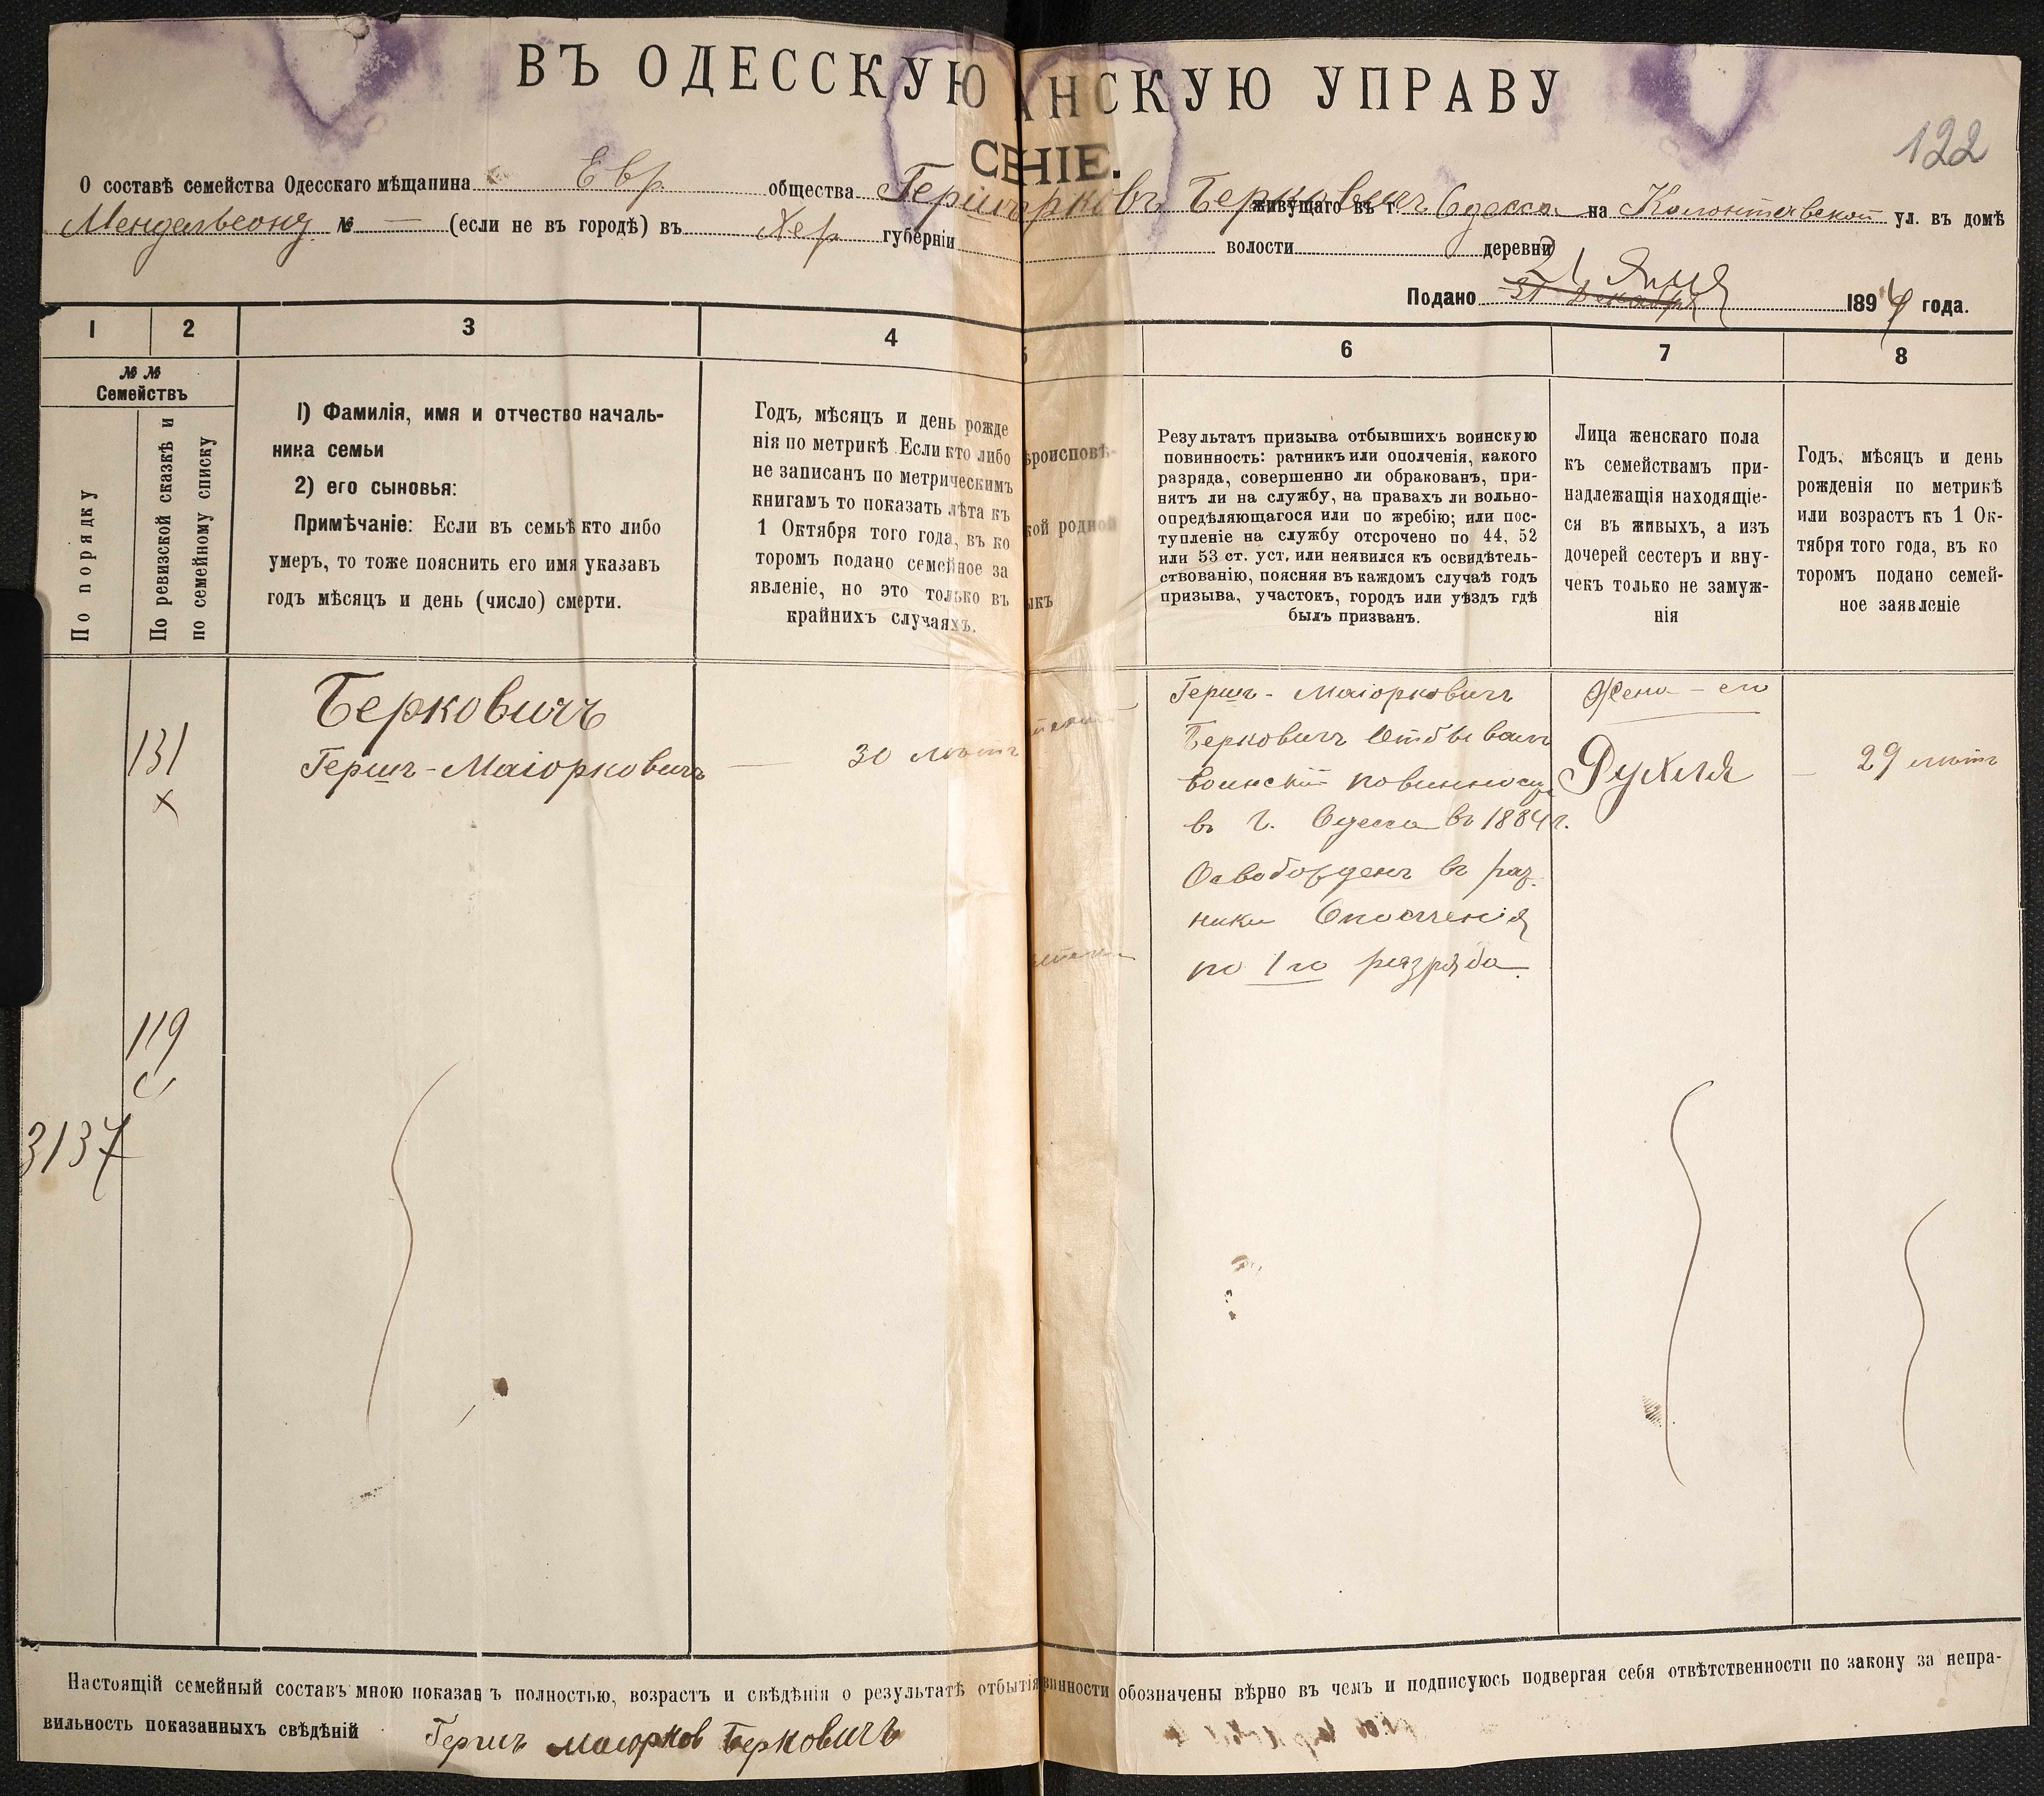 ВЪ ОДЕССКУЮ НСКУЮ УПРАВУ
122
СЕНІЕ.
О составѣ семейства Одесскаго мѣщапина Евр. общества Герш Маіорковъ Берковичъ живущаго въ г. Одесса на Колонтаевской ул. въ домѣ
Мендельсону № — (если не въ городѣ) въ Хер губерніи волости деревни
Подано 31 Декабря 21 Янв 1894 года.
1 2 3 4 5 6 7 8
№ №
Семействъ
По порядку
По ревизской сказкѣ и
по семейному списку
1) Фамилія, имя и отчество началь-
ника семьи
2) его сыновья:
Примѣчаніе: Если въ семьѣ кто либо
умеръ, то тоже пояснить его имя указавъ
годъ мѣсяцъ и день (число) смерти.
Годъ, мѣсяцъ и день рожде
нія по метрикѣ. Если кто либо
не записанъ по метрическимъ
книгамъ то показать лѣта къ
1 Октября того года, въ ко
торомъ подано семейное за
явленіе, но это только въ
крайнихъ случаяхъ.
ѣроисповѣ-
кой родной
ыкъ
Результатъ призыва отбывшихъ воинскую
повинность: ратникъ или ополченія, какого
разряда, совершенно ли обракованъ, при-
нятъ ли на службу, на правахъ ли вольно-
опредѣляющагося или по жребію; или пос-
тупленіе на службу отсрочено по 44, 52
или 53 ст. уст. или неявился къ освидѣтель-
ствованію, поясняя въ каждомъ случаѣ годъ
призыва, участокъ, городъ или уѣздъ гдѣ
былъ призванъ.
Лица женскаго пола
къ семействамъ при-
надлежащія находящіе-
ся въ живыхъ, а изъ
дочерей сестеръ и вну-
чекъ только не замуж-
нія
Годъ, мѣсяцъ и день
рожденія по метрикѣ
или возрастъ къ 1 Ок-
тября того года, въ ко
торомъ подано семей-
ное заявленіе
131
х
119
3137
Берковичъ
Гершъ-Маіорковичъ — 30 лѣтъ
Гершъ-Маіорковичъ
Берковичъ Отбывалъ
воинскій повинность
въ г. Одесса въ 1884 г.
Освобожденъ въ рат.
ники Ополченія
по 1го разряда.
Жена - его
Рухля — 29 лѣтъ
Настоящій семейный составъ мною показанъ полностью, возрастъ и свѣдѣнія о результатѣ отбытія винности обозначены вѣрно въ чемъ и подписуюсь подвергая себя отвѣтственности по закону за непра-
вильность показанныхъ свѣдѣній Гершъ Маіорков Берковичъ